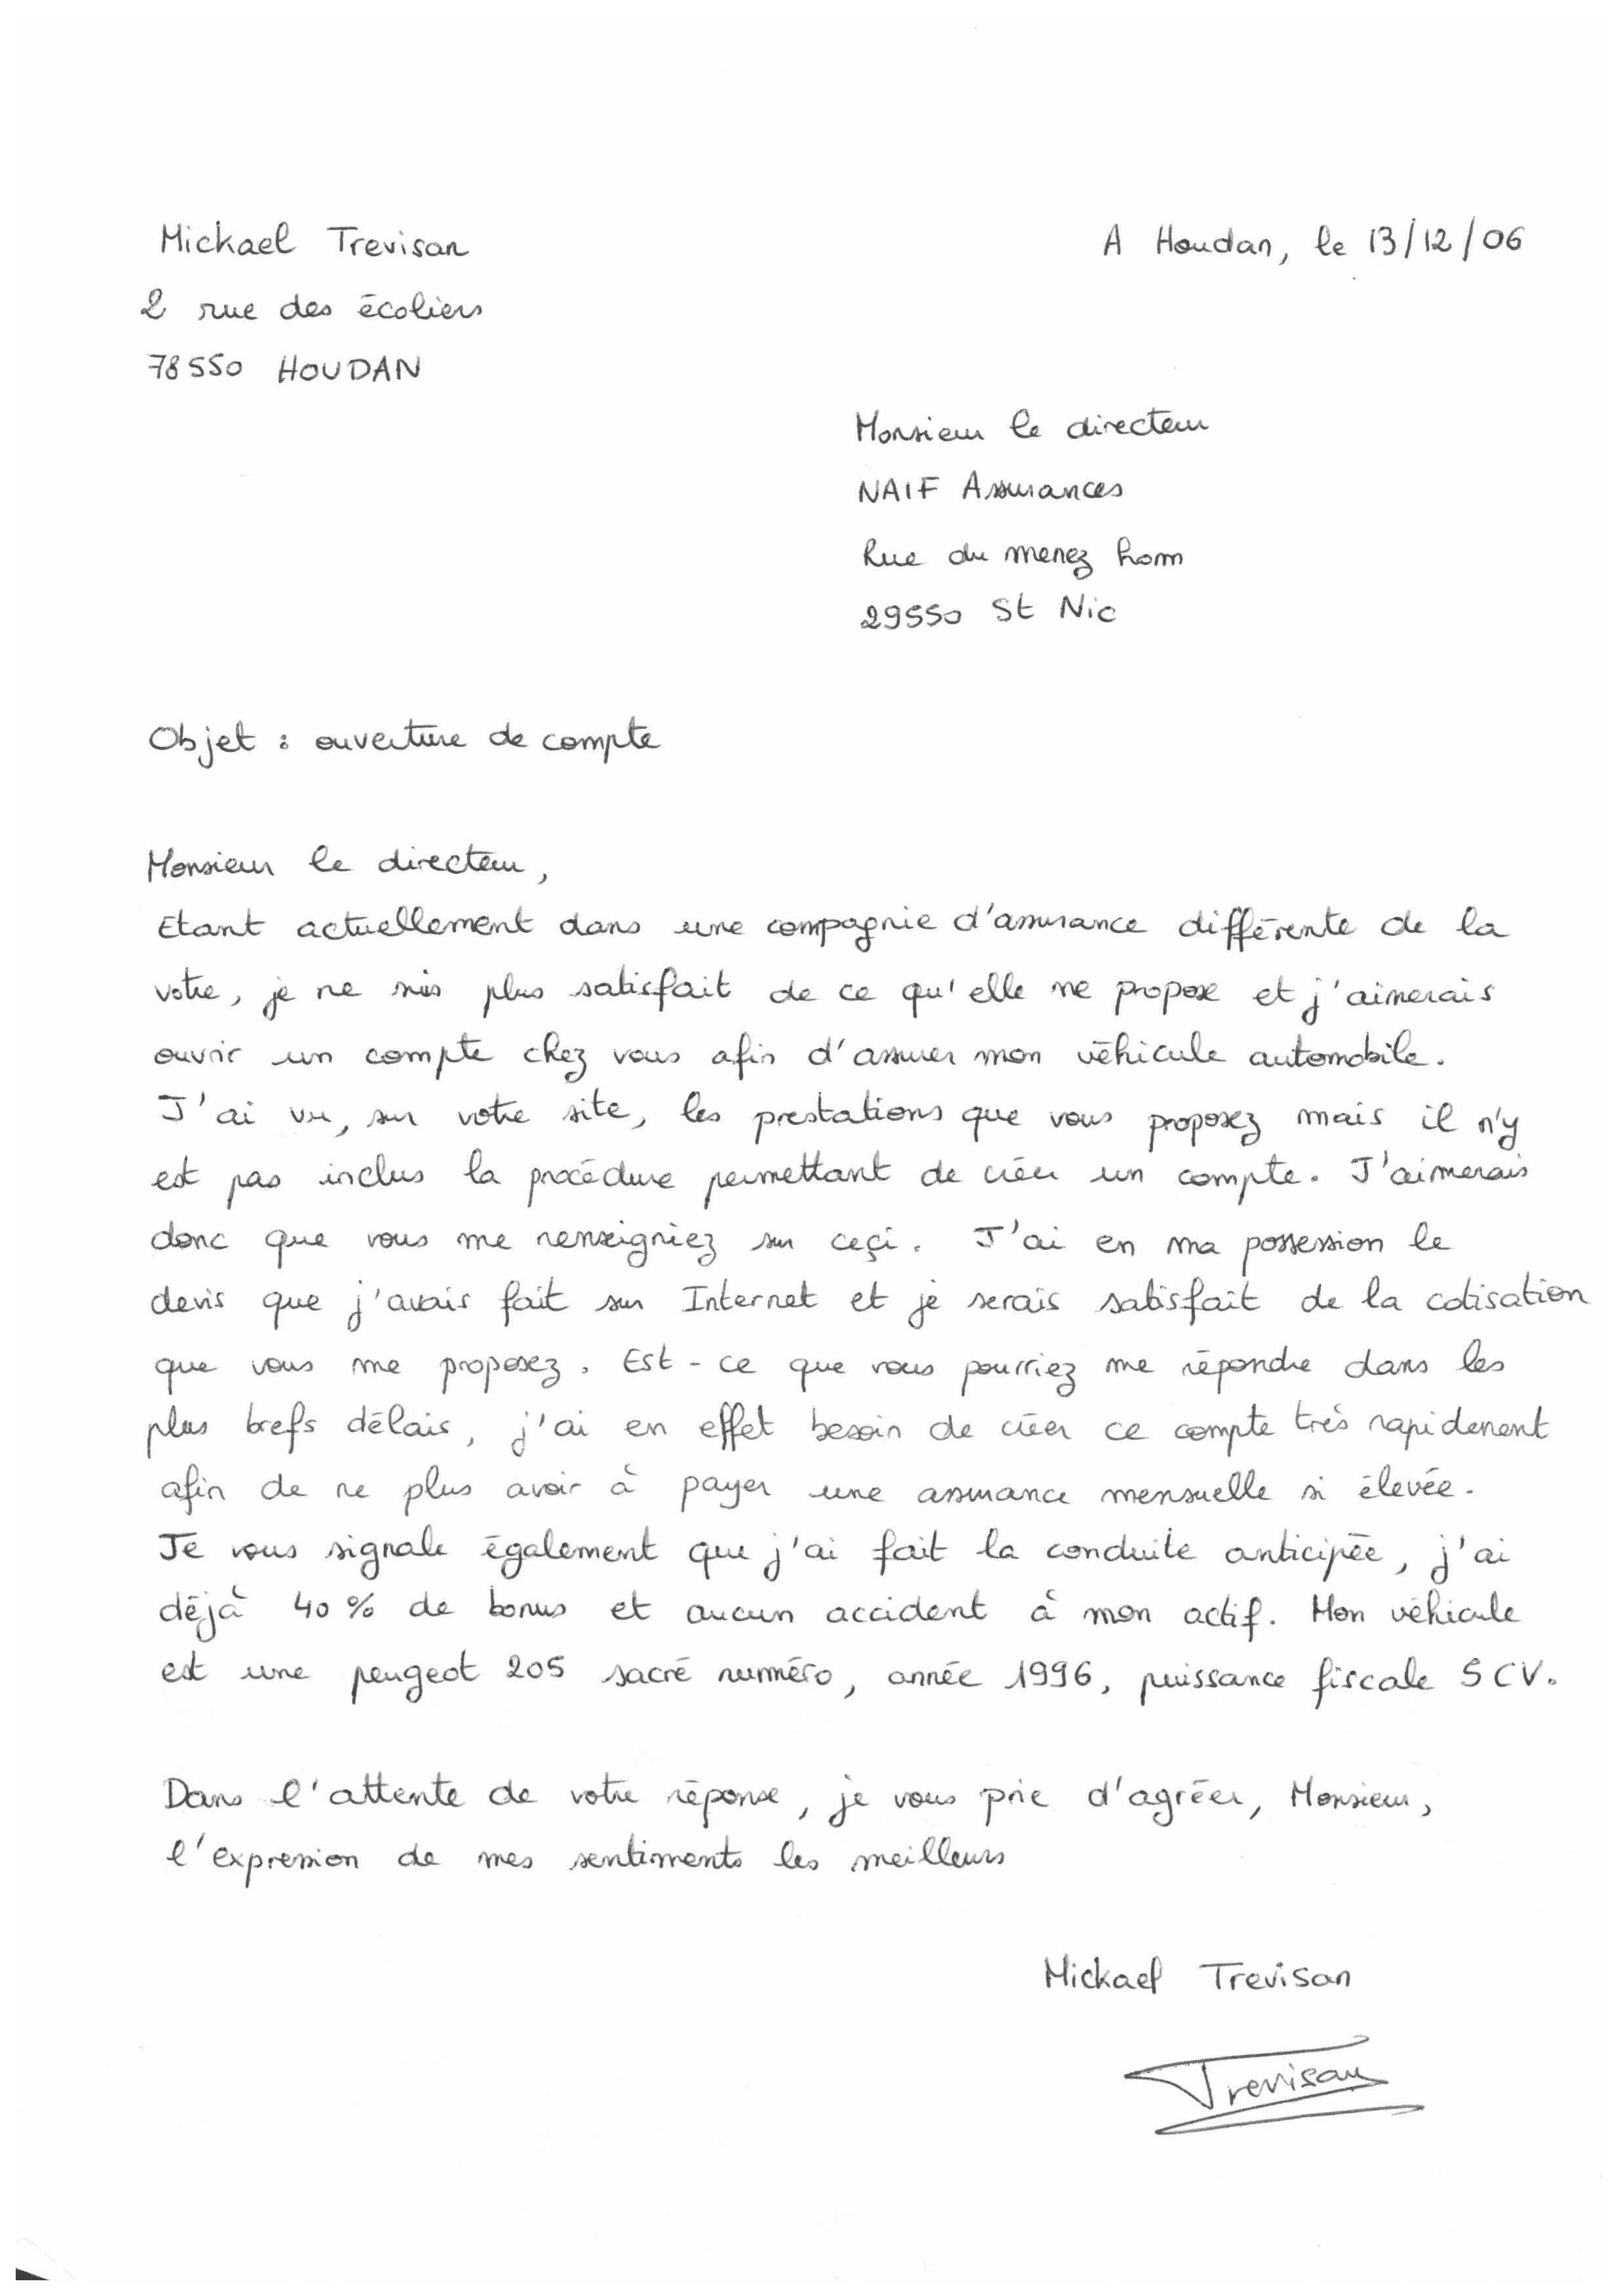 Mickael Trevisan
A Houdan, le 13/12/06
2 rue des écoliers
78550 HOUDAN
Monsieur le directeur
NAIF Assurances
Rue du menez hom
29550 St Nic
Objet : ouverture de compte
Monsieur le directeur,
Etant actuellement dans une compagnie d'assurance différente de la
votre, je ne suis plus satisfait de ce qu'elle me propose et j'aimerais
ouvrir un compte chez vous afin d'assurer mon véhicule automobile.
J'ai vu, sur votre site, les prestations que vous proposez mais il n'y
est pas inclus la procédure permettant de créer un compte. J'aimerais
donc que vous me renseigniez sur ceçi. J'ai en ma possession le
devis que j'avais fait sur Internet et je serais satisfait de la cotisation
que vous me proposez. Est-ce que vous pourriez me répondre dans les
plus brefs délais, j'ai en effet besoin de créer ce compte très rapidement
afin de ne plus avoir à payer une assurance mensuelle si élevée.
Je vous signale également que j'ai fait la conduite anticipée, j'ai
déjà 40% de bonus et aucun accident à mon actif. Mon véhicule
est une peugeot 205 sacré numéro, année 1996, puissance fiscale 5 CV.
Dans l'attente de votre réponse, je vous prie d'agréer, Monsieur,
l'expression de mes sentiments les meilleurs
Mickael Trevisan
Trevisan